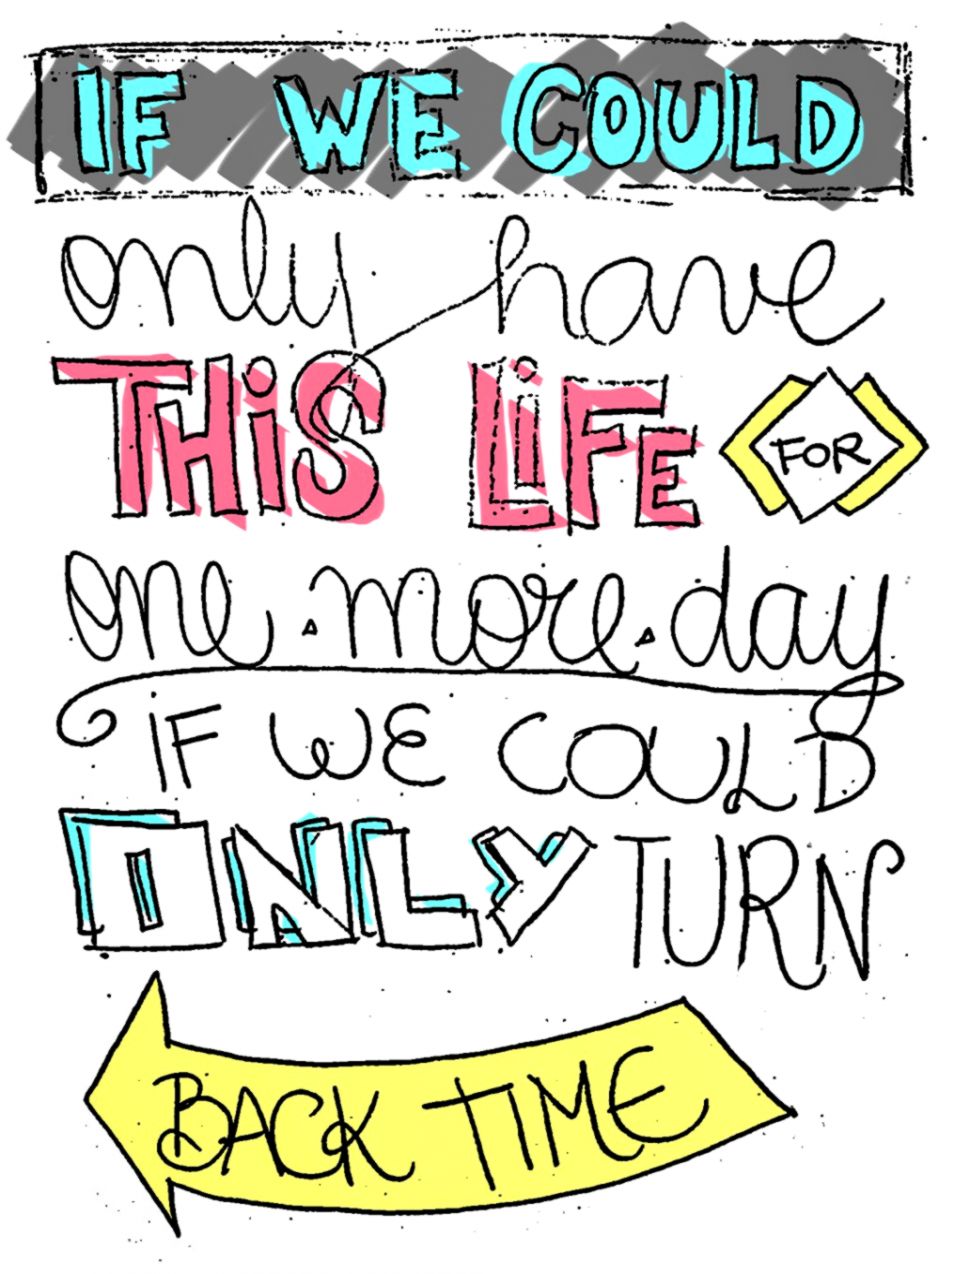 IF WE COULD
only have
THiS LiFE FOR
one more day
IF WE COULD
ONLY TURN
BACK TIME